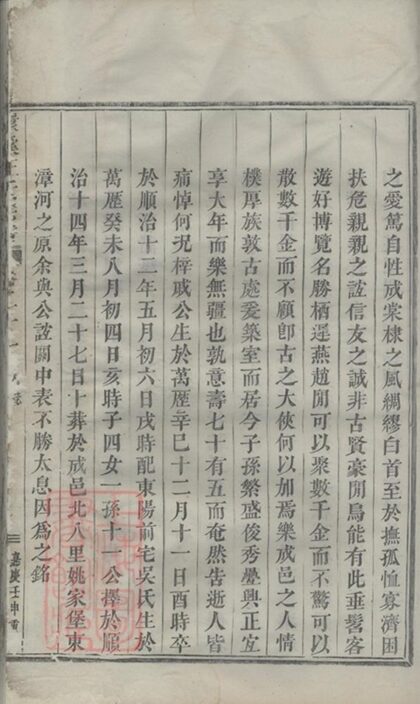 之愛篤自性成棠棣之風綢繆白首至於撫孤恤寡濟困
扶危親親之誼信友之誠非古賢豪閒鳥能有此垂髫客
遊好博覽名勝栖遲燕趙閒可以聚數千金而不驚可以
散數千金而不顧卽古之大俠何以加焉樂成邑之人情
樸厚族敦古處爰築室而居今子孫繁盛俊秀疊興正宜
享大年而樂無疆也孰意壽七十有五而奄然告逝人皆
痛悼何況梓戚公生於萬厯辛巳十二月十一日酉時卒
於順治十二年五月初六日戌時配東陽前宅吳氏生於
萬厯癸未八月初四日亥時子四女一孫十一公擇於順
治十四年三月二十七日卜葬於成邑北八里姚家堡東
漳河之原余與公誼關中表不勝太息因為之銘
嘉慶壬申重